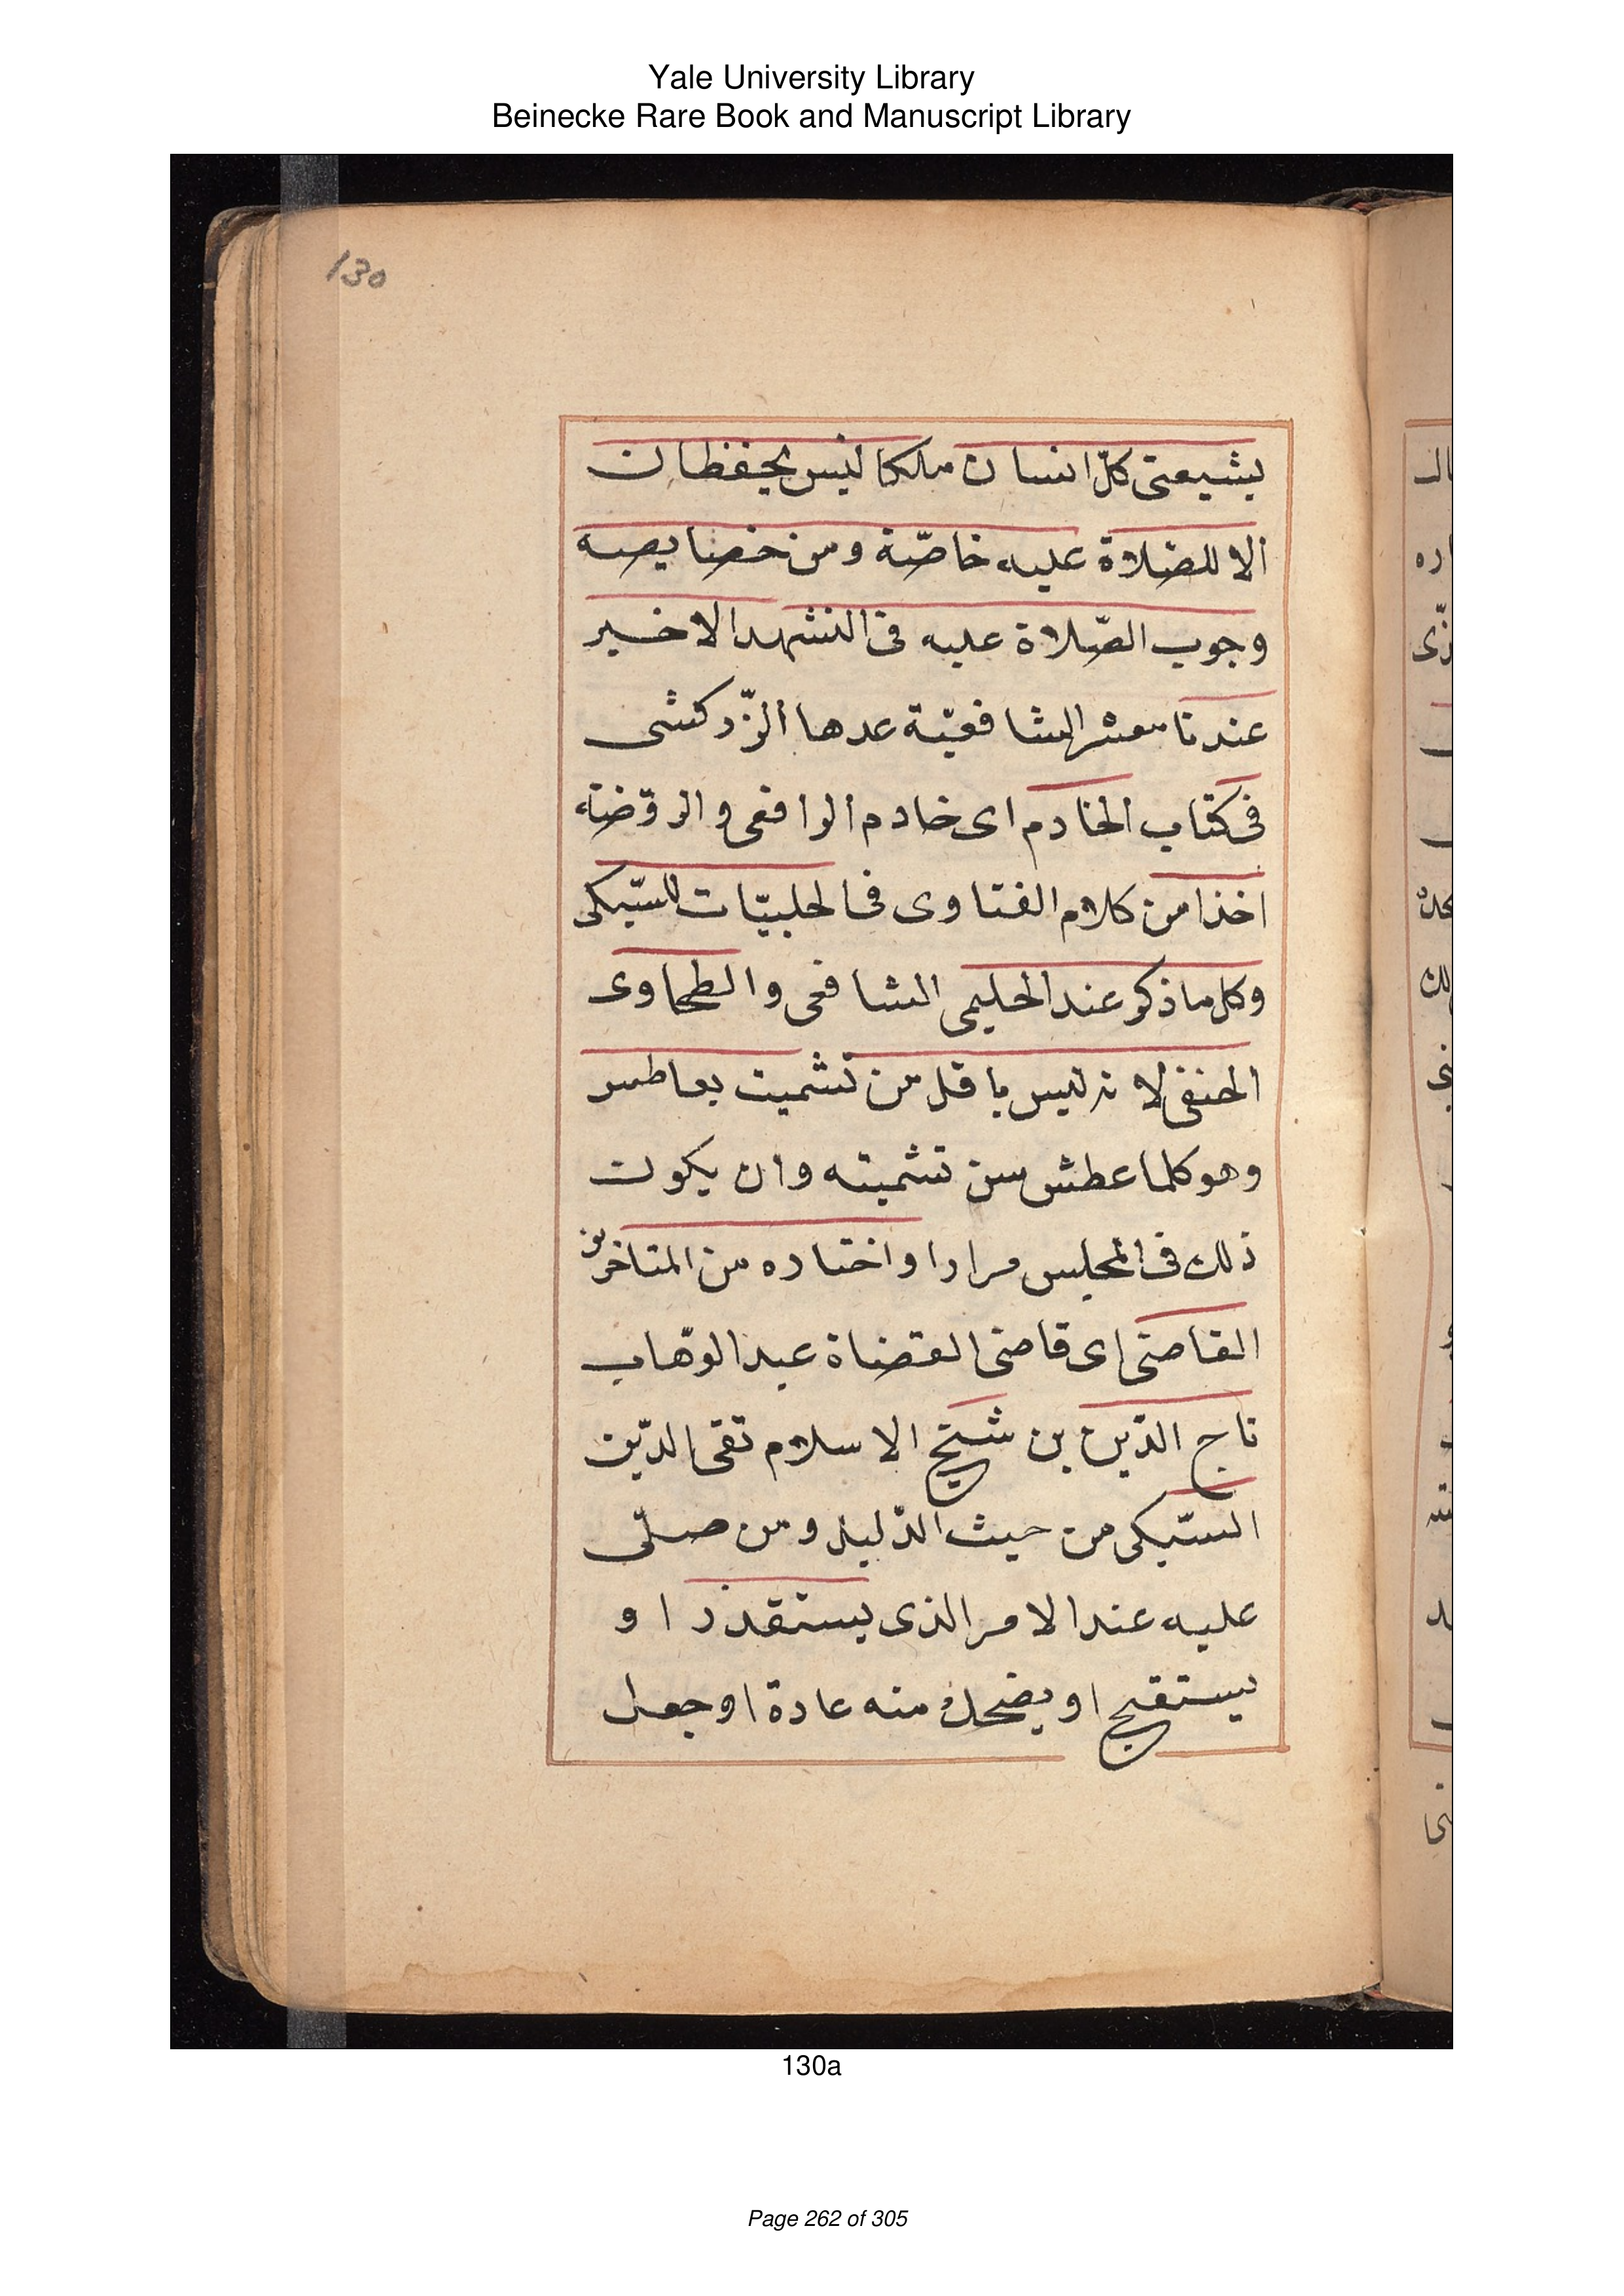 Yale University Library
Beinecke Rare Book and Manuscript Library
130
بشيعتى كلّ انسان ملكا ليس يحفظان
الا للصّلاة عليه خاصّة ومن خصايصه
وجوب الصّلاة عليه فى التشهد الاخير
عندنا معشر الشافعيّة عدها الزّركشى
فى كتاب الخادم اى خادم الرافعى والروّضة
اخذا من كلام الفتاوى فى الحلبيّات للسّبكى
وكل ما ذكر عند الحليمى الشافعى والطحاوى
الحنفى لانه ليس باقل من تشميت بعاطس
وهو كلما عطش سن تشميته وان يكون
ذلك فى المجلس مرارا واختاره من المتاخرين
القاضى اى قاضى القضاة عبد الوّهاب
تاج الدّين بن شيخ الاسلام تقى الدّين
السّبكى من حيث الدّليل ومن صلّى
عليه عند الامر الذى يستقذر او
يستقبح او يضحك منه عادة او جعل
130a
Page 262 of 305